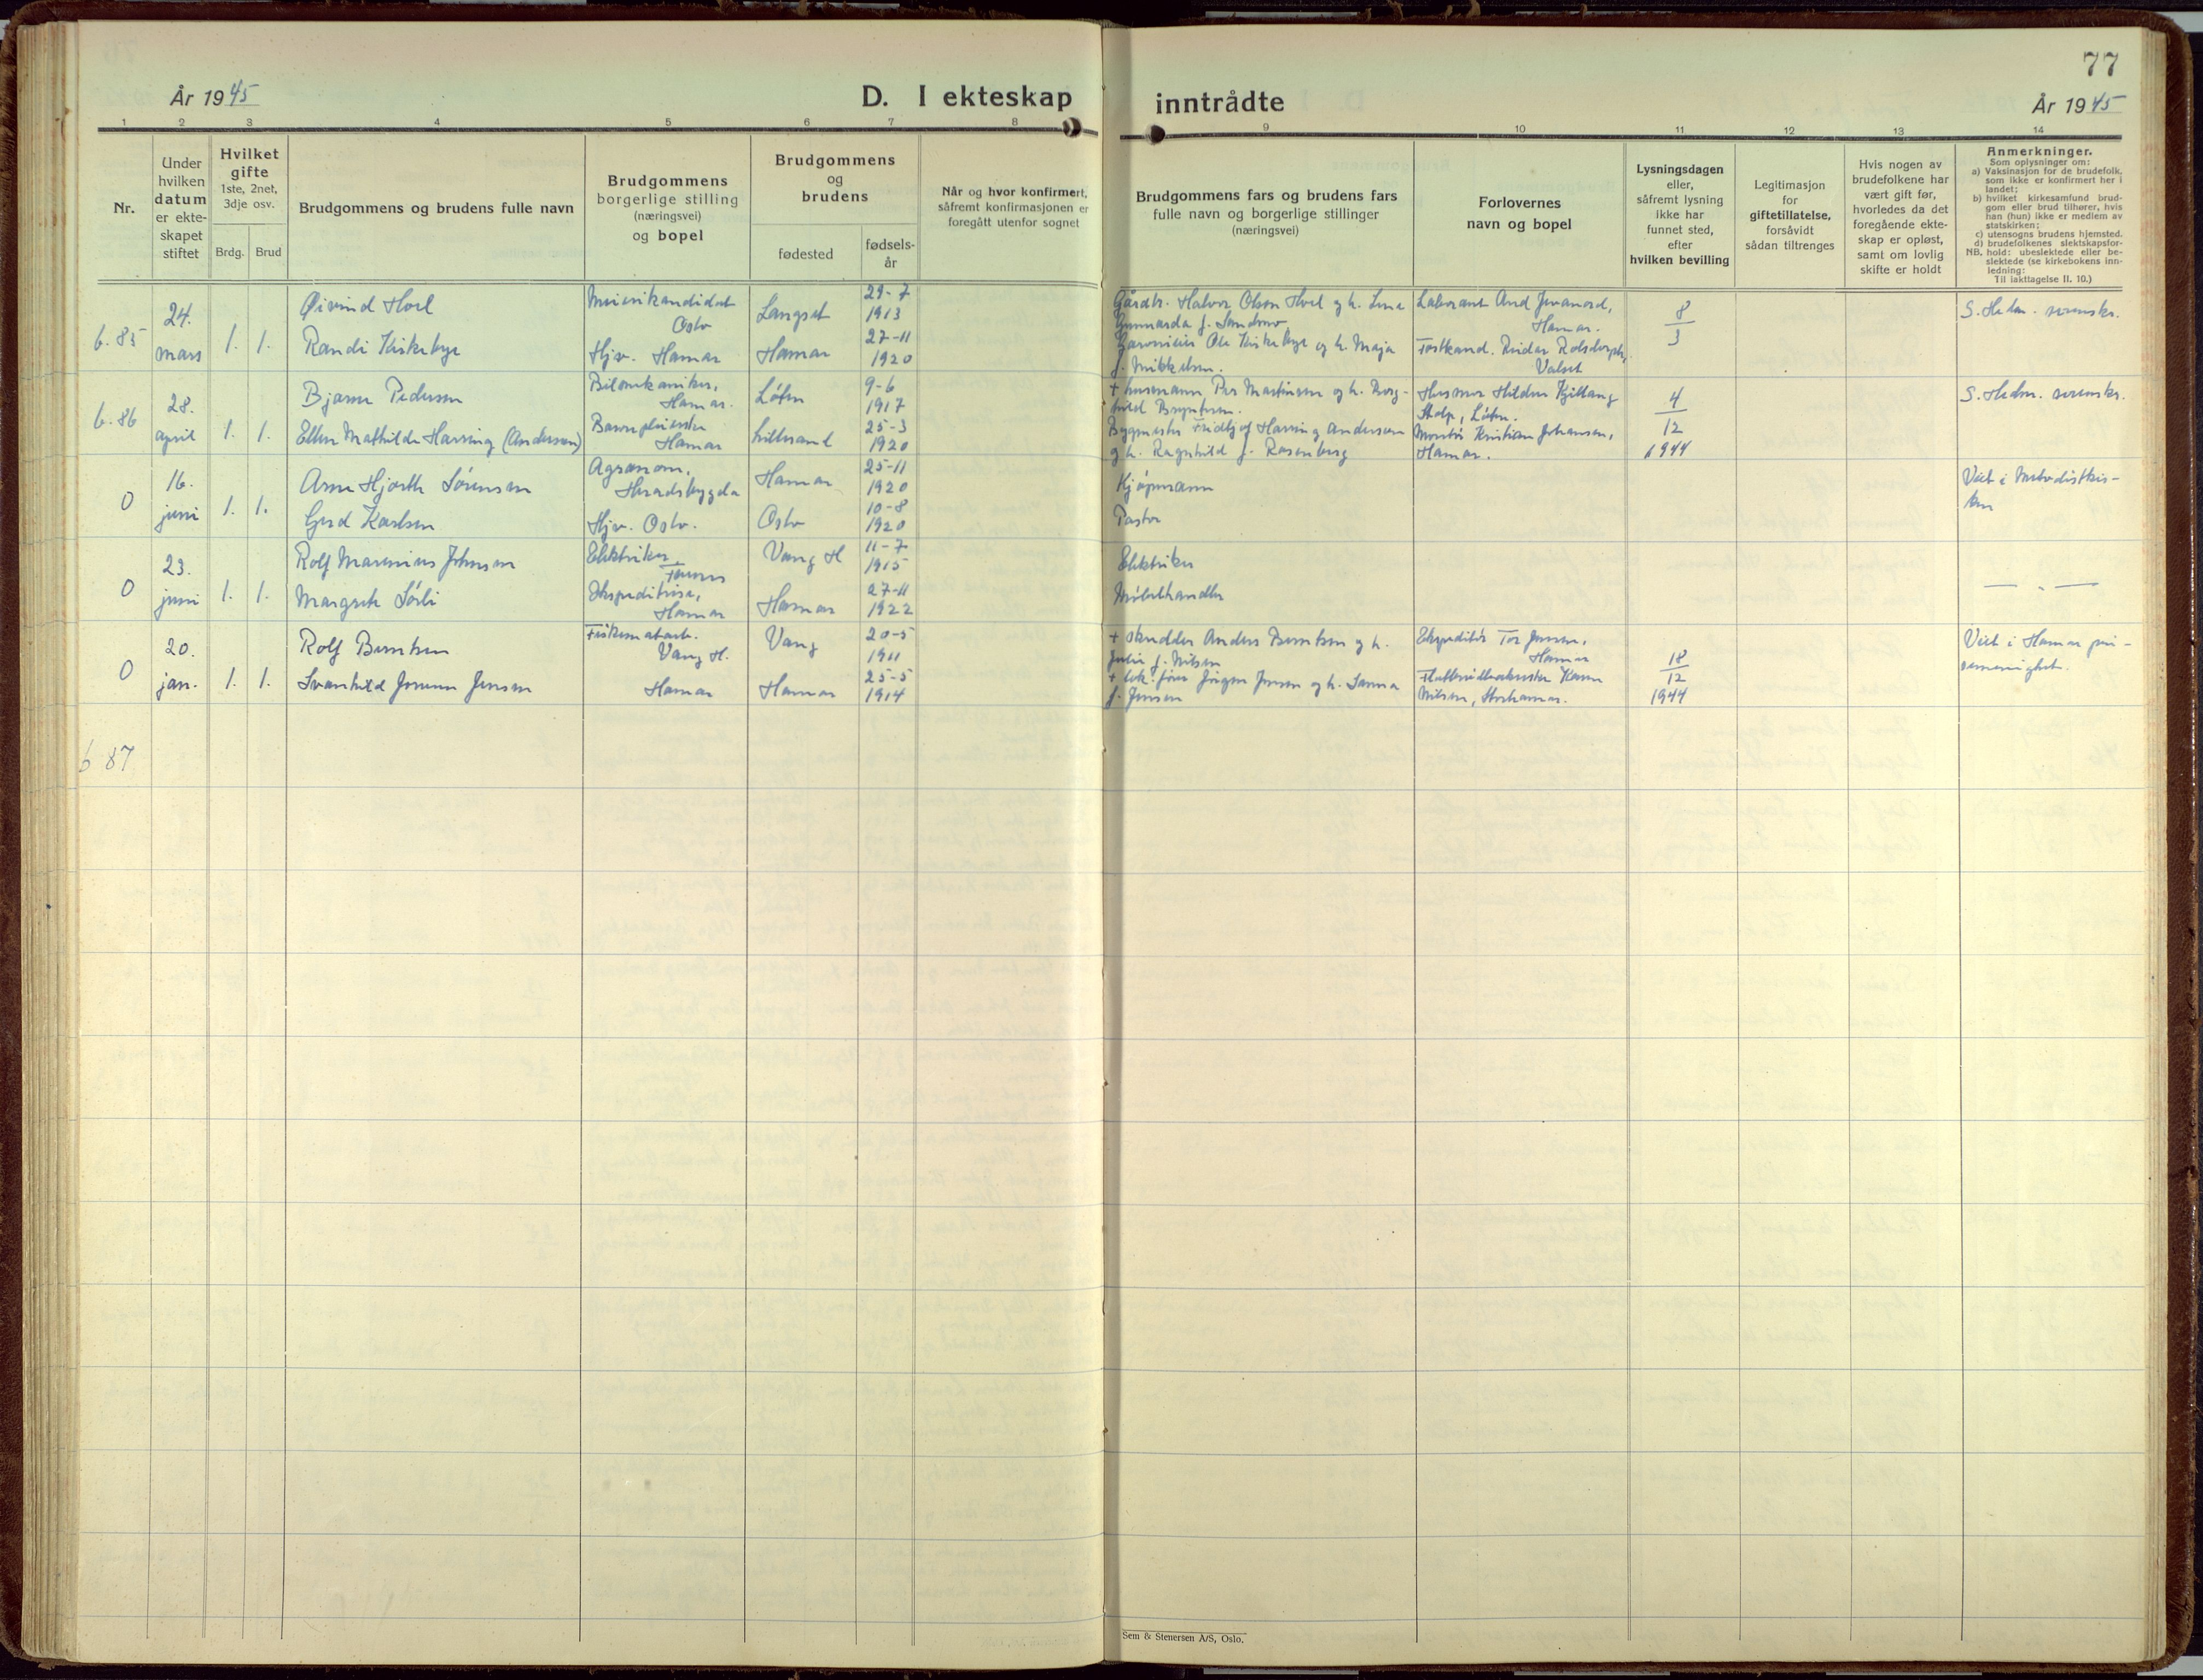 77
År 1945
D. I ekteskap inntrådte
År 1945
1 2 3 4 5 6 7 8 9 10 11 12 13 14
Nr.
Under
hvilken
datum
er ekte-
skapet
stiftet
Hvilket
gifte
1ste, 2net,
3dje osv.
Brdg. Brud
Brudgommens og brudens fulle navn
Brudgommens
borgerlige stilling
(næringsvei)
og bopel
Brudgommens
og
brudens
fødested
fødsels-
år
Når og hvor konfirmert,
såfremt konfirmasjonen er
foregått utenfor sognet
Brudgommens fars og brudens fars
fulle navn og borgerlige stillinger
(næringsvei)
Forlovernes
navn og bopel
Lysningsdagen
eller,
såfremt lysning
ikke har
funnet sted,
efter
hvilken bevilling
Legitimasjon
for
giftetillatelse,
forsåvidt
sådan tiltrenges
Hvis nogen av
brudefolkene har
vært gift før,
hvorledes da det
foregående ekte-
skap er opløst,
samt om lovlig
skifte er holdt
Anmerkninger.
Som oplysninger om:
a) Vaksinasjon for de brudefolk,
som ikke er konfirmert her i
landet;
b) hvilket kirkesamfund brud-
gom eller brud tilhører, hvis
han (hun) ikke er medlem av
statskirken;
c) utensogns brudens hjemsted.
d) brudefolkenes slektskapsfor-
NB. hold: ubeslektede eller be-
slektede (se kirkebokens inn-
ledning:
Til iakttagelse II. 10.)
b. 85
24.
mars
1. 1.
Øivind Hoel
Randi Kirkebye
Oslo
Hjv. Hamar
Langset
Hamar
29-7
1913
27-11
1920
Gårdbr. Halvor Olsen Hoel og h. Lina
Gunnarda f.
Ole Kirkebye og h. Maja
f. Mikkelsen.
Laborant
Hamar.
Reidar
8
3
S. Hedm. sorenskr.
b. 86
28.
april
1. 1.
Bjarne Pedersen
Ellen Mathilde Harring (Andersen)
Bilmekaniker,
Hamar.
Barnepleierske
Hamar
Løten
Lillesand
9-6
1917
25-3
1920
+ husmann Per Martinsen og h. Borg-
hild
Byggmester Fridtjof Harring Andersen
og h. Ragnhild f. Rosenberg
Husmor Hildur
Løten.
Montør Kristian Johansen,
Hamar.
4
12
1944
S. Hedm. sorenskr.
0
16.
juni
1. 1.
Arne Hjorth Sørensen
Gerd Karlsen
Agronom,
Heradsbygda
Hjv. Oslo.
Hamar
Oslo
25-11
1920
10-8
1920
Kjøpmann
Pastor
Viet i Metodistkir-
ken
0
23.
juni
1. 1.
Rolf Marenius Johnsen
Margrete Sørli
Elektriker
Furnes
Ekspeditrise,
Hamar
Vang H
Hamar
11-7
1915
27-11
1922
Elektriker
Møbelhandler
— " —
0
20.
jan.
1. 1.
Rolf Berntsen
Svanhild Jensen
Vang H.
Hamar
Vang
Hamar
20-5
1911
25-5
1914
+ skredder Anders Berntsen og h.
Julie f. Nilsen
+ lok. fører Jørgen Jensen og h. Sanna
f. Jensen
Ekspeditør Tor Jensen,
Hamar
Karen
Nilsen, Storhamar.
18
12
1944
Viet i Hamar pin-
semenighet.
b 87
Sem & Stenersen A/S, Oslo.